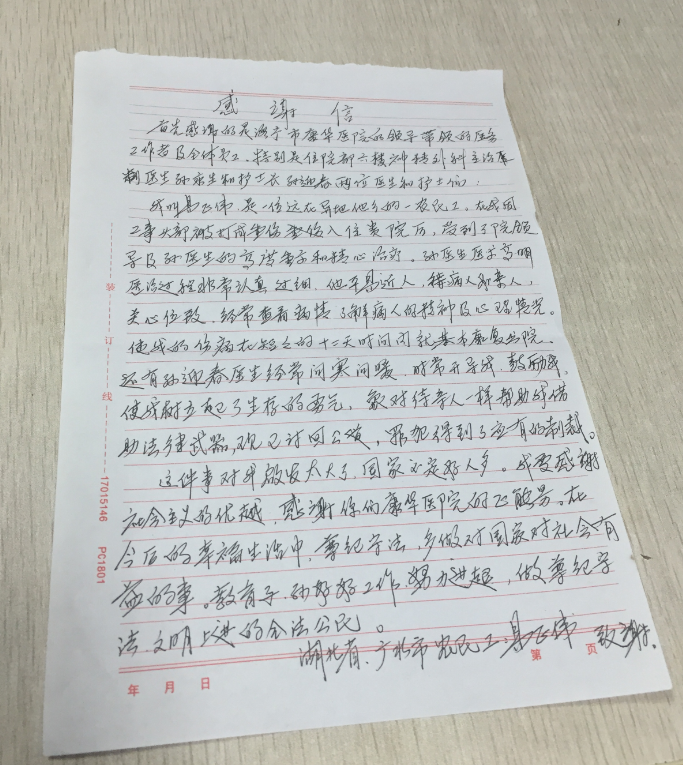 感 谢 信
首先感谢的是 市康华医院的领导带领的医务
工作者及全体员工,特别是住院部六楼神精外科主治医
医生孙永生和护士长孙迎春两位医生和护士们:
我叫 正伟,是一位远在异地他乡的一农民工,在我因
工事 部被打成重伤 后入住贵院后,受到了院领
导及孙医生的高 和精心治疗。孙医生医术高明
医治过程非常认真过细,他平易近人,待病人如亲人,
关心 ,经常查看病情了解病人的精神及心理状况。
使我的伤病在短短的十二天时间内就基本康复出院、
还有孙迎春医生经常问寒问暖,时常开导我,鼓励我,
使我树立起了生存的勇气,象对待亲人一样帮助我借
助法律武器,现已讨回公道,罪犯得到了应有的制裁。
这件事对我启发太大了,国家还是好人多。我要感谢
社会主义的优越,感谢你们康华医院的正能量。在
今后的幸福生活中,尊纪守法,多做对国家对社会有
益的事。教育子孙好好工作,努力进取,做尊纪守
法、文明上进的合法公民。
湖北省、 市农民工: 正伟 致谢。
装 订 线
17015146 PC1801
年 月 日
第 页